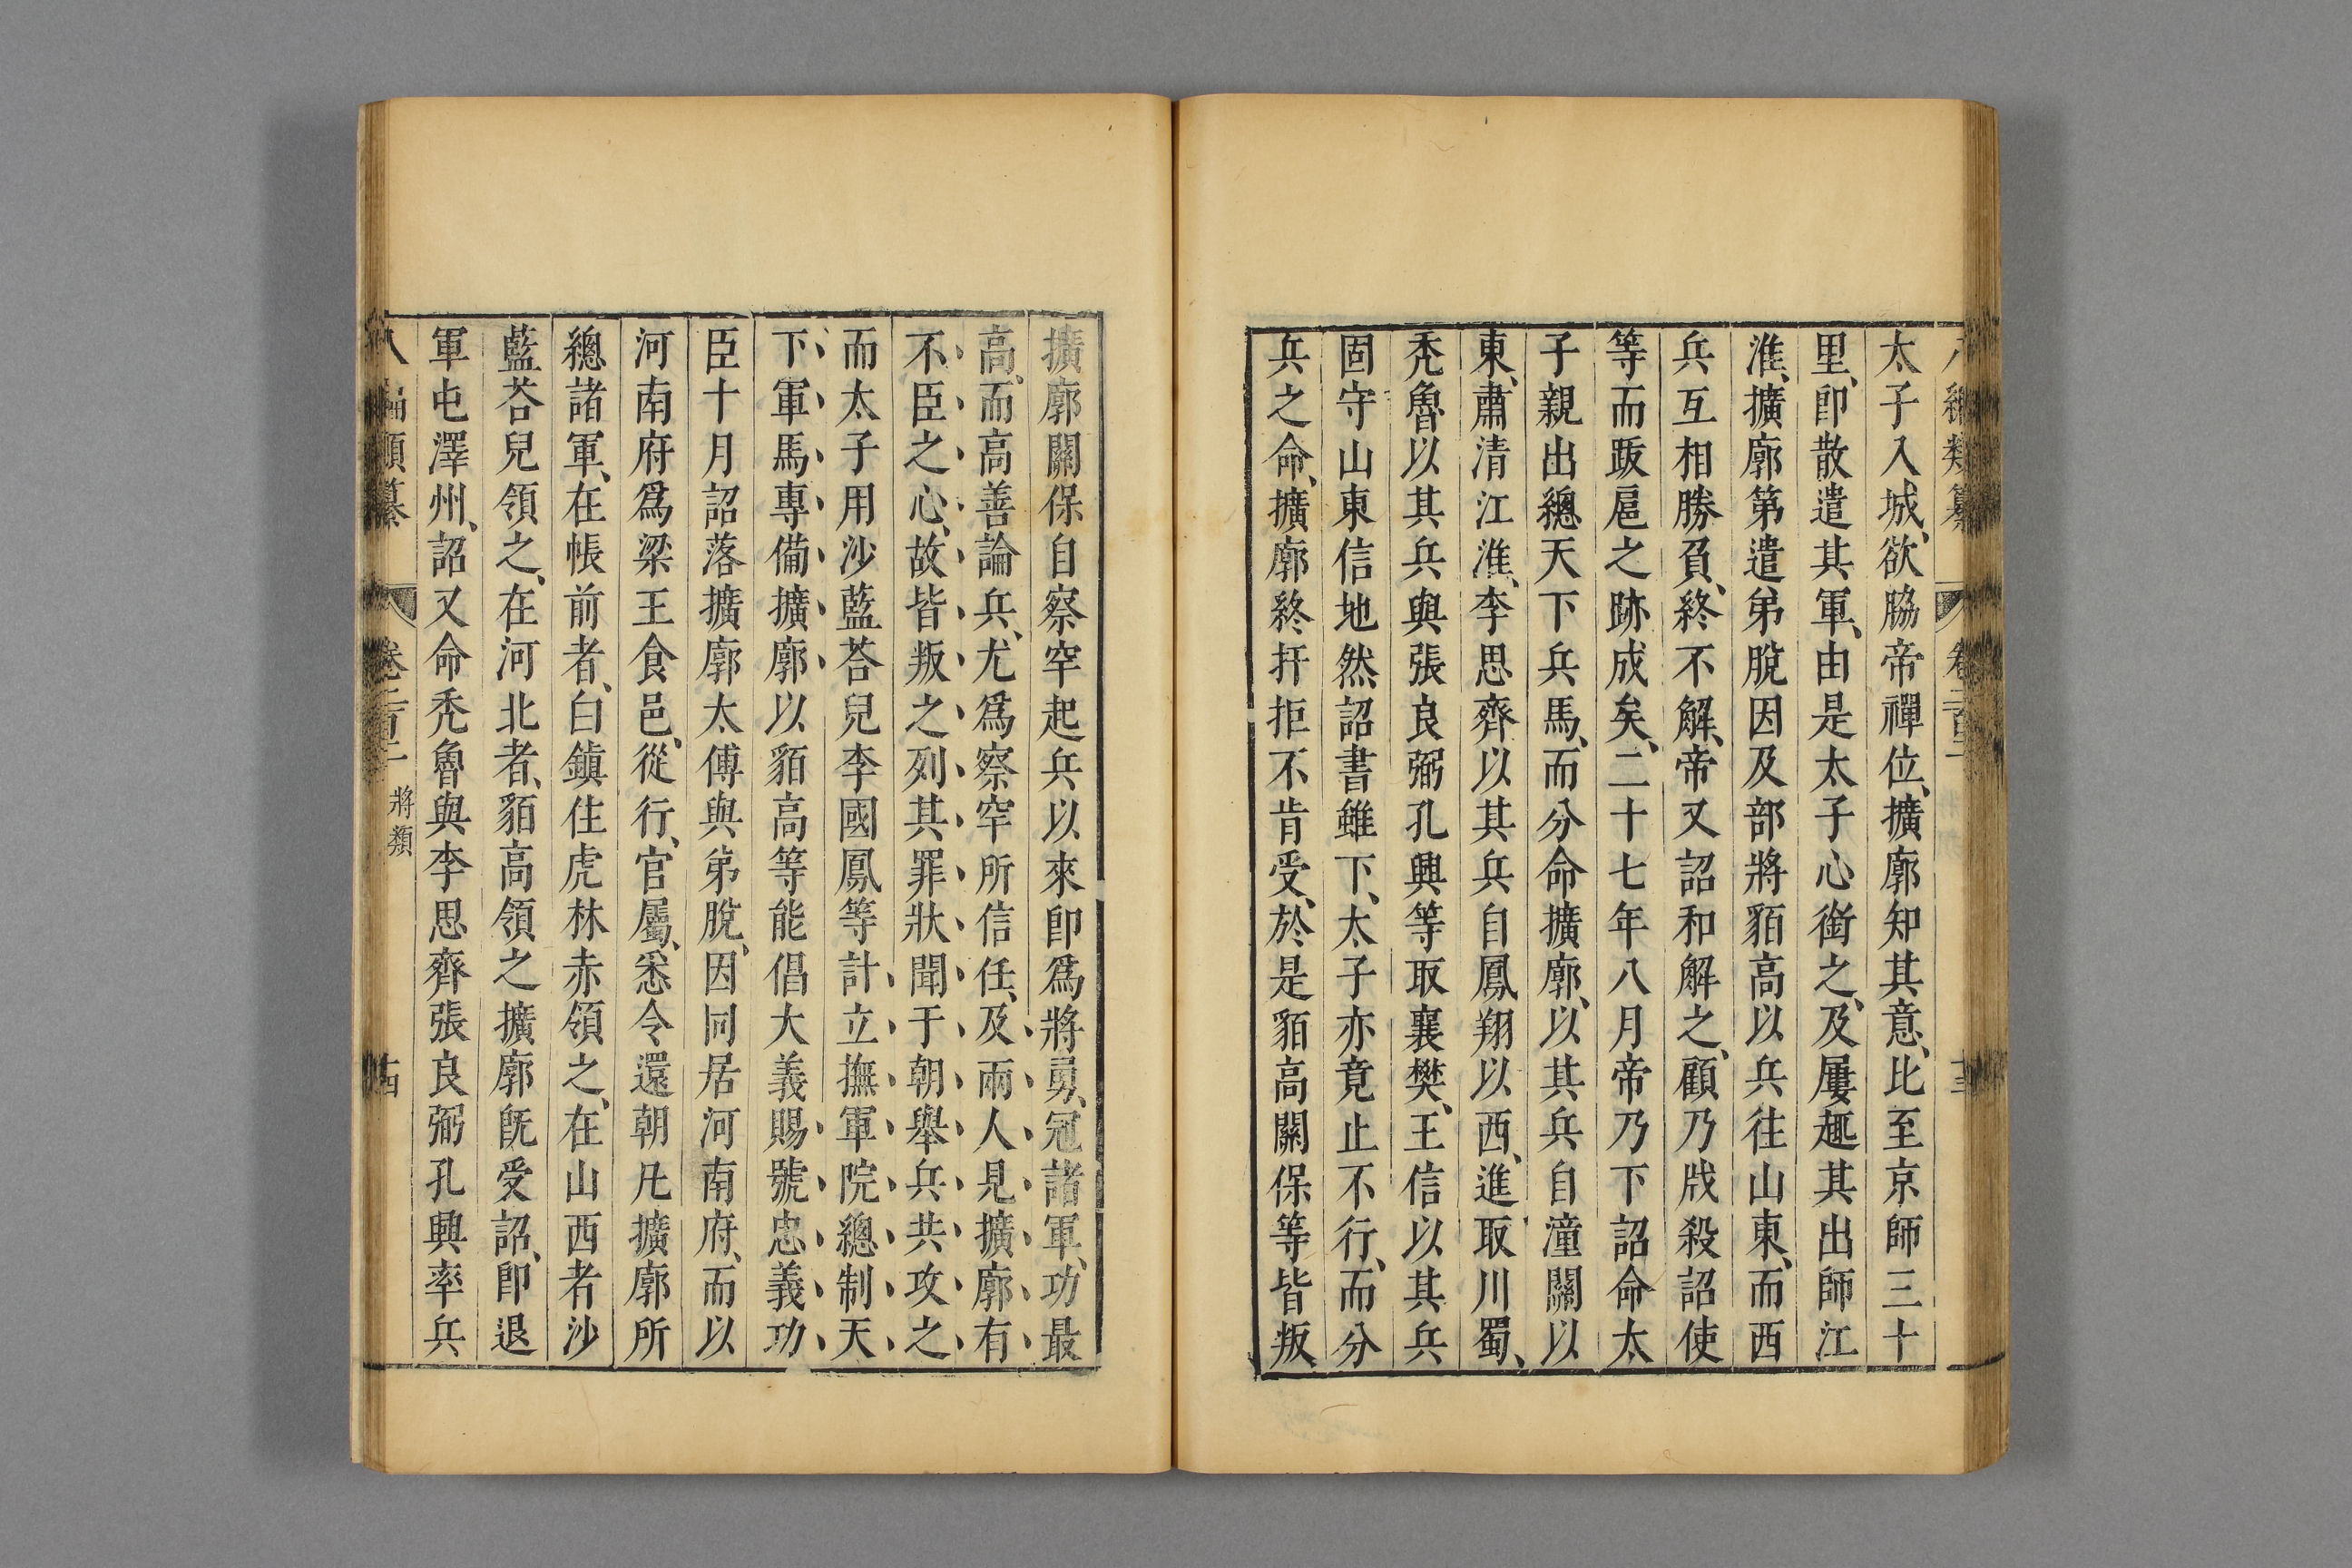 太子入城、欲脇帝禪位、擴廓知其意、比至京師三十
里、卽散遣其軍、由是太子心銜之、及屢趣其出師江
淮、擴廓第遣弟脫因及部將貊高以兵往山東、而西
兵互相勝負、終不解、帝又詔和解之、顧乃戕殺詔使
等而跋扈之跡成矣、二十七年八月帝乃下詔命太
子親出總天下兵馬、而分命擴廓、以其兵自潼關以
東、肅清江淮、李思齊以其兵自鳳翔以西、進取川蜀、
禿魯以其兵與張良弼孔興等取襄樊、王信以其兵
固守山東信地然詔書雖下、太子亦竟止不行、而分
兵之命、擴廓終扞拒不肯受、於是貊高關保等皆叛
擴廓關保自察罕起兵以來卽爲將勇、冠諸軍、功最
高、而高善論兵、尤爲察罕所信任、及兩人見擴廓有
不臣之心、故皆叛之列其罪狀聞于朝舉兵共攻之
而太子用沙藍荅兒李國鳳等計立撫軍院總制天
下軍馬專備擴廓以貊高等能倡大義賜號忠義功
臣十月詔落擴廓太傅與弟脫、因同居河南府、而以
河南府爲梁王食邑、從行、官屬、悉令還朝凡擴廓所
總諸軍、在帳前者、白鎖住虎林赤領之、在山西者沙
藍荅兒領之、在河北者、貊高領之擴廓旣受詔、卽退
軍屯澤州、詔又命禿魯與李思齊張良弼孔興率兵
八編類纂 卷二百二 將類 十四